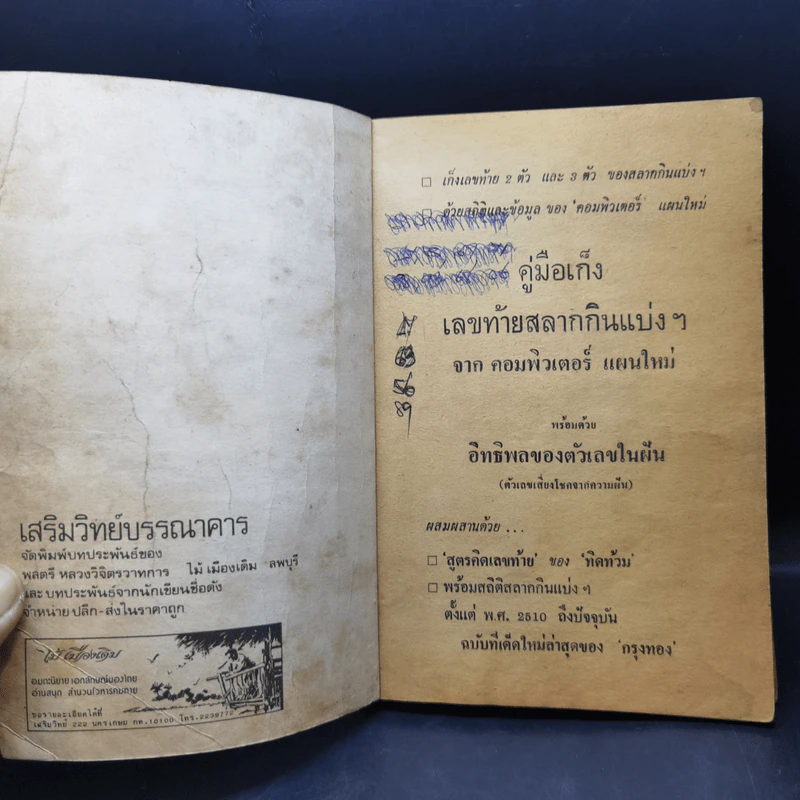 เสริมวิทย์บรรณาคาร
จัดพิมพ์บทประพันธ์ของ
พลตรี หลวงวิจิตรวาทการ ไม้ เมืองเดิม ลพบุรี
และบทประพันธ์จากนักเขียนชื่อดัง
จำหน่ายปลีก-ส่งในราคาถูก
ไม้ เมืองเดิม
อมตะนิยาย เอกลักษณ์ของไทย
อ่านสนุก สำนวนโวหารคมคาย
ขอรายละเอียดได้ที่
เสริมวิทย์ 222 นครเกษม กท.10100 โทร.2239772
□ เก็งเลขท้าย 2 ตัว และ 3 ตัว ของสลากกินแบ่งฯ
□ ด้วยสถิติและข้อมูล ของ 'คอมพิวเตอร์ แผนใหม่
คู่มือเก็ง
เลขท้ายสลากกินแบ่งฯ
จาก คอมพิวเตอร์ แผนใหม่
พร้อมด้วย
อิทธิพลของตัวเลขในฝัน
(ตัวเลขเสี่ยงโชคจากความฝัน)
ผสมผสานด้วย ...
□ 'สูตรคิดเลขท้าย' ของ 'ทิดท้วม'
□ พร้อมสถิติสลากกินแบ่งฯ
ตั้งแต่ พ.ศ. 2510 ถึงปัจจุบัน
ฉบับที่เด็ดใหม่ล่าสุดของ 'กรุงทอง'